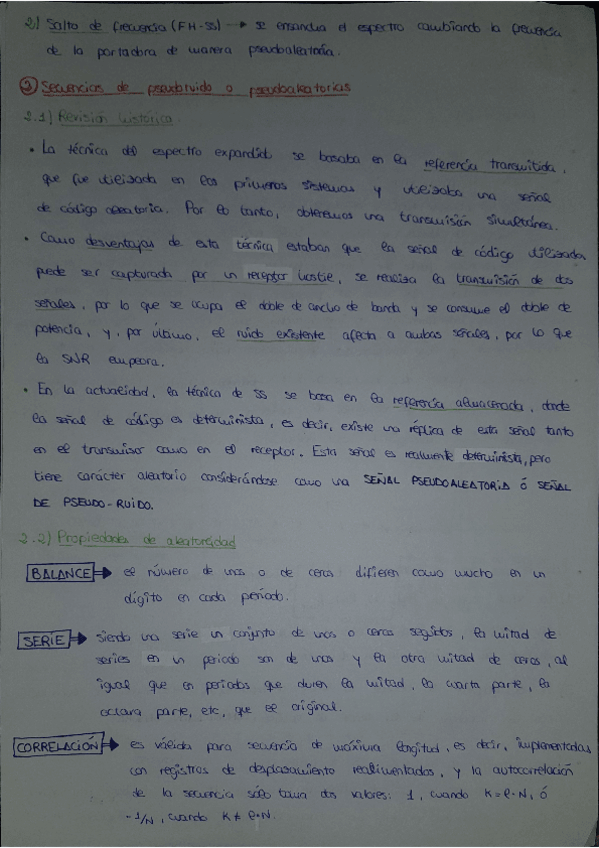 2) Salto de frecuencia (FH-SS) → se ensancha el espectro cambiando la frecuencia
de la portadora de manera pseudoaleatoria.
② Secuencias de pseudoruido o pseudoaleatorias
2.1) Revisión histórica
• La técnica del espectro expandido se basaba en la referencia transmitida,
que fue utilizada en los primeros sistemas y utilizaba una señal
de código aleatoria. Por lo tanto, obtenemos una transmisión simultánea.
• Como desventajas de esta técnica estaban que la señal de código utilizada
puede ser capturada por un receptor hostie, se realiza la transmisión de dos
señales, por lo que se ocupa el doble de ancho de banda y se consume el doble de
potencia, y, por último, el ruido existente afecta a ambas señales, por lo que
la SNR empeora.
• En la actualidad, la técnica de SS se basa en la referencia almacenada, donde
la señal de código es determinista, es decir, existe una réplica de esta señal tanto
en el transmisor como en el receptor. Esta señal es realmente determinista, pero
tiene carácter aleatorio considerándose como una SEÑAL PSEUDOALEATORIA ó SEÑAL
DE PSEUDO-RUIDO.
2.2) Propiedades de aleatoreidad
BALANCE → el número de unos o de ceros difieren como mucho en un
dígito en cada periodo.
SERIE → siendo una serie un conjunto de unos o ceros seguidos, la mitad de
series en un periodo son de unos y la otra mitad de ceros, al
igual que en periodos que duren la mitad, la cuarta parte, la
octava parte, etc, que el original.
CORRELACIÓN → es válida para secuencia de máxima longitud, es decir, implementadas
con registros de desplazamiento realimentados, y la autocorrelación
de la secuencia sólo toma dos valores: 1, cuando K = l·N, ó
-1/N, cuando K ≠ l·N.